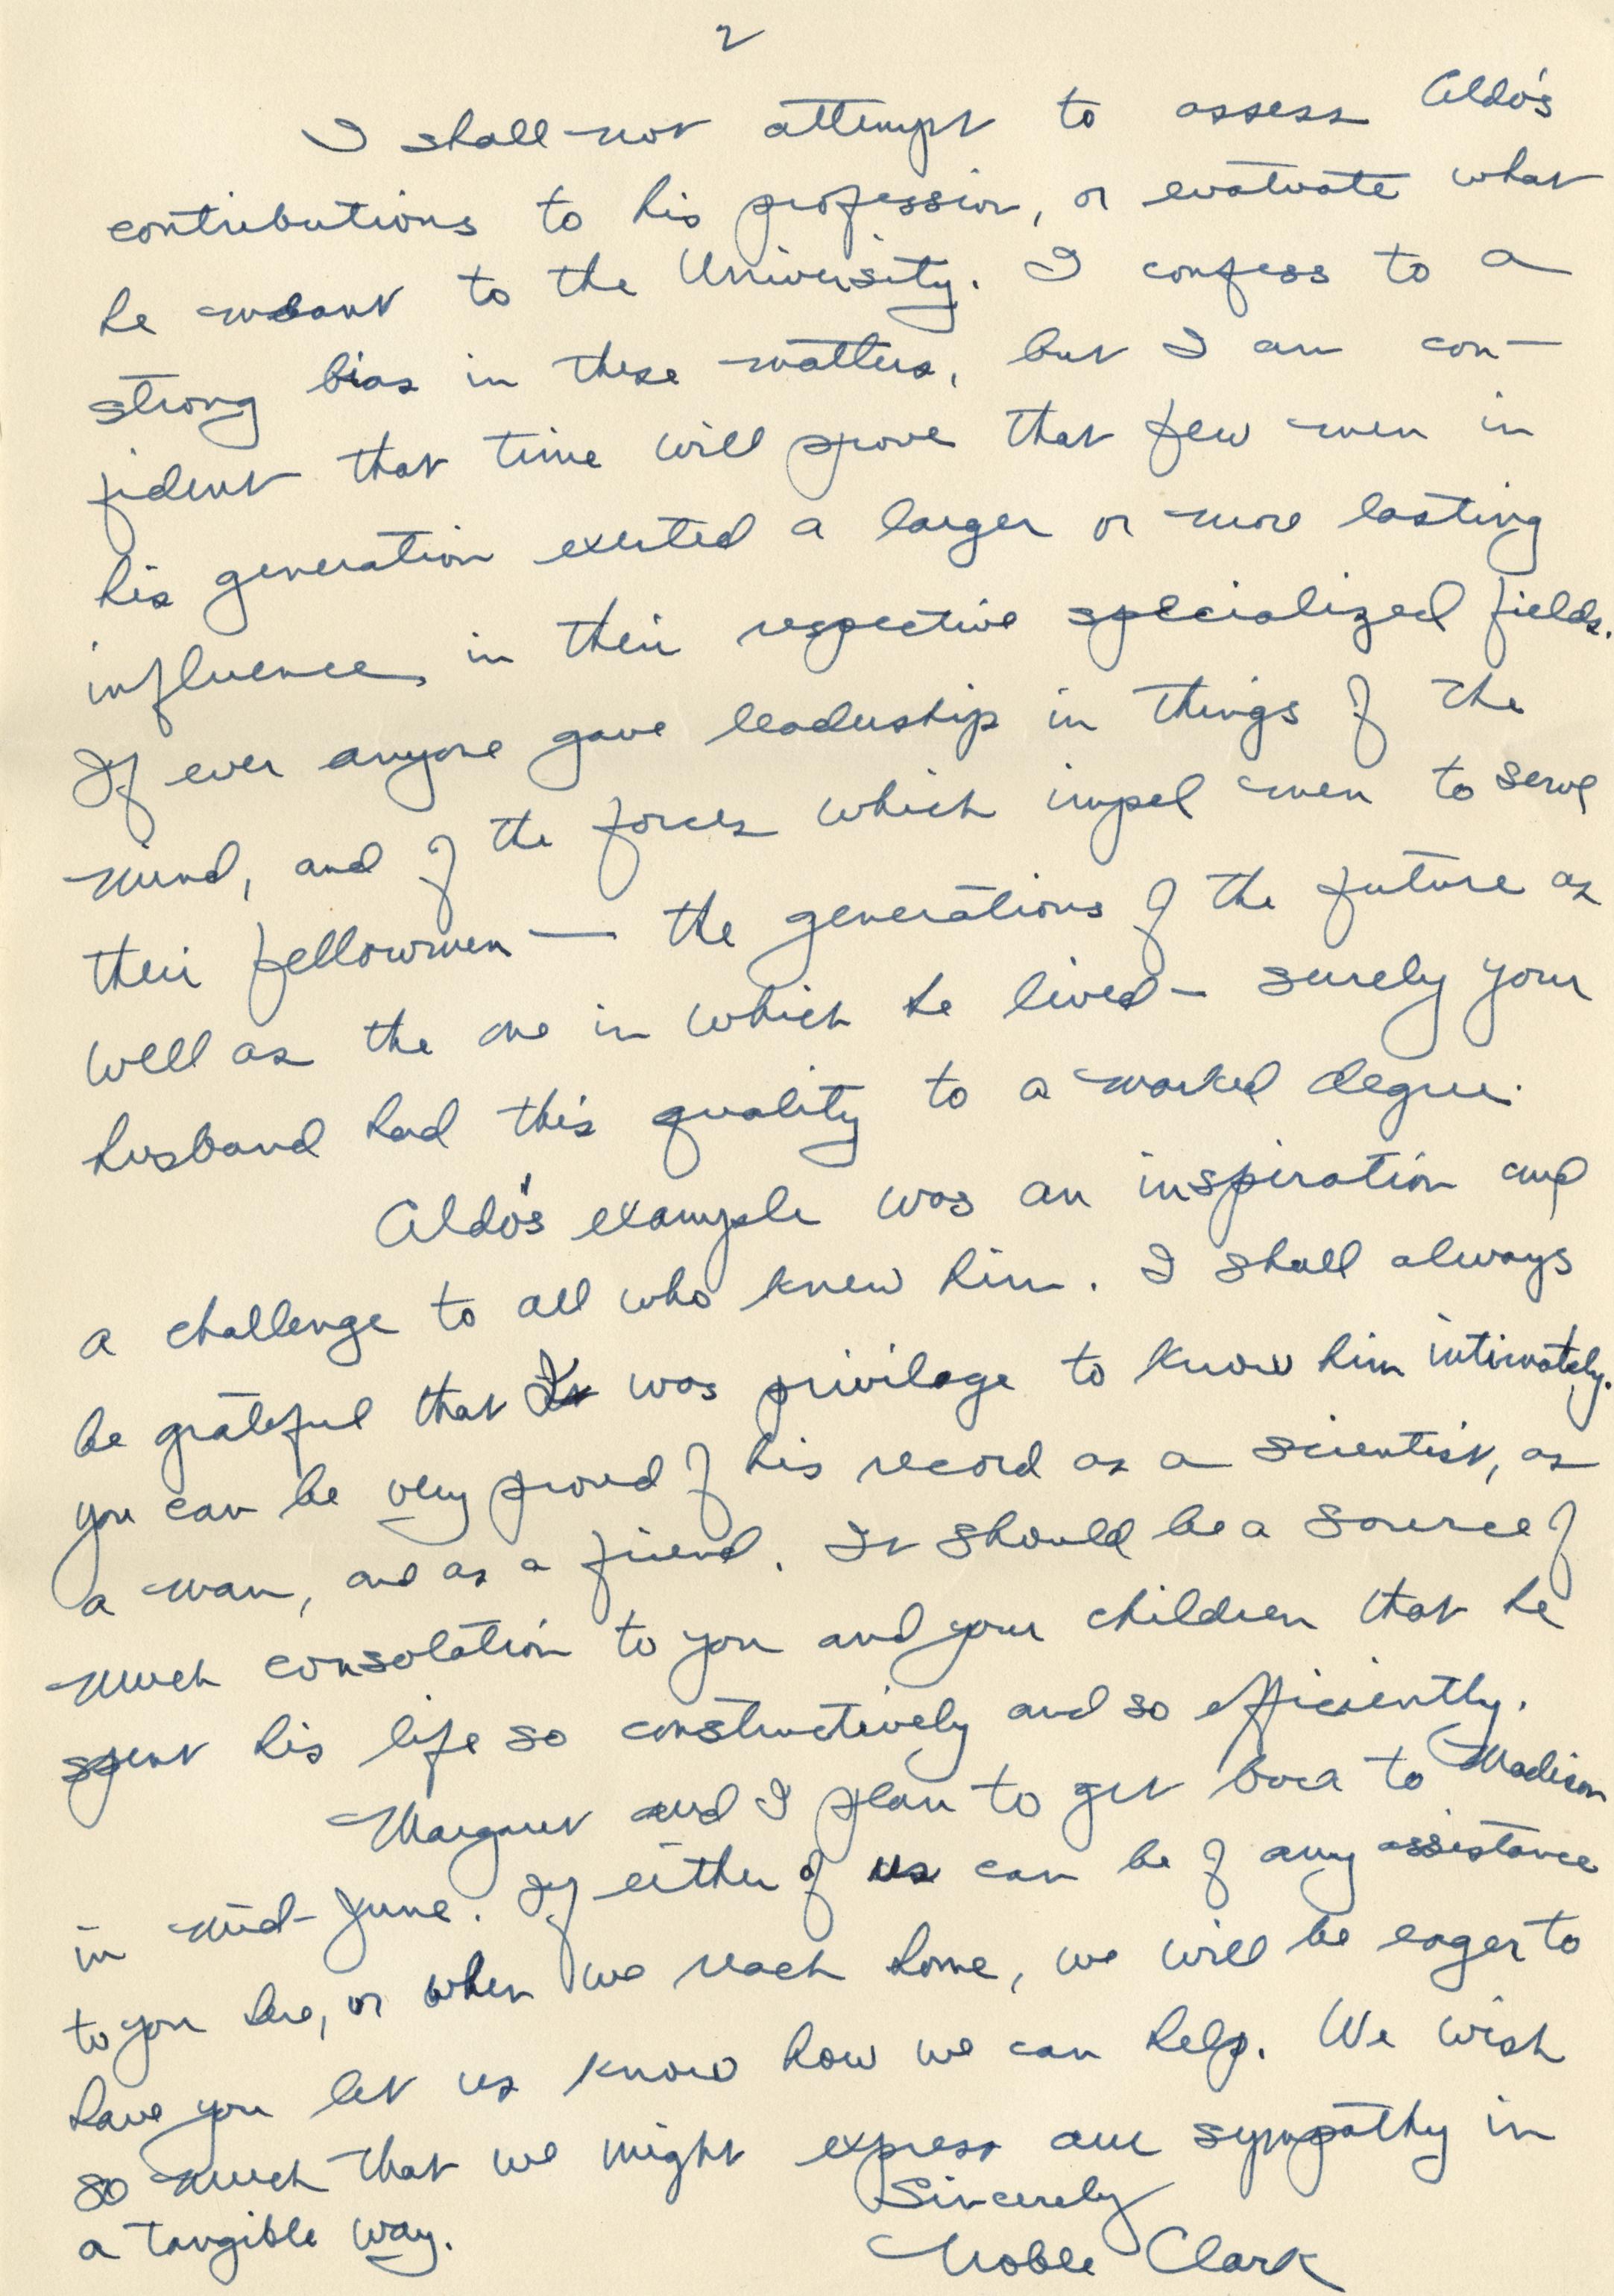 2
I shall not attempt to assess Aldo's
contributions to his profession, or evaluate what
he meant to the University. I confess to a
strong bias in these matters, but I am con-
fident that time will prove that few men in
his generation exerted a larger or more lasting
influence, in their respective specialized fields.
If ever anyone gave leadership in things of the
mind, and of the forces which impel men to serve
their fellowmen — the generations of the future as
well as the one in which he lived — surely your
husband had this quality to a marked degree.
Aldo's example was an inspiration and
a challenge to all who knew him. I shall always
be grateful that it was privilage to know him intimately.
You can be very proud of his record as a scientist, as
a man, and as a friend. It should be a source of
much consolation to you and your children that he
spent his life so constructively and so efficiently.
Margaret and I plan to get back to Madison
in mid-June. If either of us can be of any assistance
to you here, or when we reach home, we will be eager to
have you let us know how we can help. We wish
so much that we might express our sympathy in
a tangible way.
Sincerely
Noble Clark